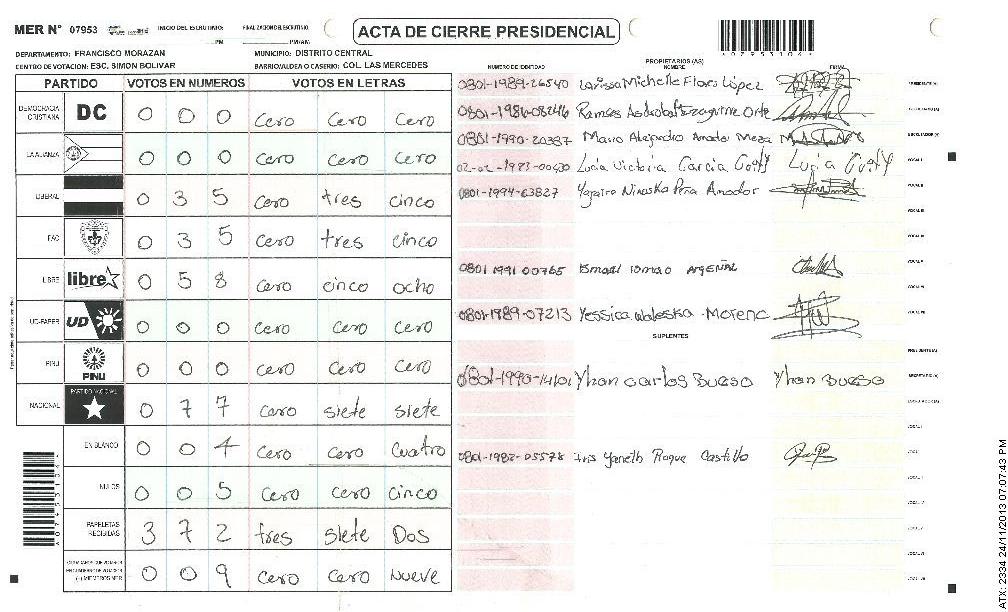 MER N° 07953 INICIO DEL ESCRUTINIO: FINALIZACION ESCRUTINIO: ACTA DE CIERRE PRESIDENCIAL
PM PM/AM
DEPARTAMENTO: FRANCISCO MORAZAN MUNICIPIO: DISTRITO CENTRAL
CENTRO DE VOTACION: ESC. SIMON BOLIVAR BARRIO/ALDEA O CASERIO: COL. LAS MERCEDES
PARTIDO VOTOS EN NUMEROS VOTOS EN LETRAS
DEMOCRACIA CRISTIANA DC 0 0 0 Cero Cero Cero
LA ALIANZA 0 0 0 Cero Cero Cero
LIBERAL 0 3 5 Cero tres cinco
FAC 0 3 5 Cero tres cinco
LIBRE libre 0 5 8 Cero cinco ocho
UD-FAPER UD 0 0 0 Cero Cero Cero
PINU PINU 0 0 0 Cero Cero Cero
NACIONAL PARTIDO NACIONAL 0 7 7 Cero siete siete
EN BLANCO 0 0 4 Cero Cero Cuatro
NULOS 0 0 5 Cero Cero Cinco
PAPELETAS RECIBIDAS 3 7 2 tres siete Dos
(+) MIEMBROS MER 0 0 9 Cero Cero Nueve
PROPIETARIOS (AS)
NUMERO DE IDENTIDAD NOMBRE FIRMA
0801-1989-26540 Larissa Michelle Flores López PRESIDENTE (A)
0801-1986-08246 Ramses SECRETARIO (A)
0801-1990-20387 Mario Alejandro Amador Meza ESCRUTADOR (A)
02-02-1983-00430 Lucia Victoria Garcia Lucia VOCAL I
0801-1994-63827 Yajaira Ninoska Peña Amador VOCAL II
VOCAL III
VOCAL IV
0801 1991 00765 Ismael ARGEÑAL VOCAL V
VOCAL VI
0801-1989-07213 Yessica Waleska Moreno VOCAL VII
SUPLENTES
PRESIDENTE (A)
0801-1990-14101 Yhan Carlos Bueso Yhan Bueso SECRETARIO (A)
ESCRUTADOR (A)
VOCAL I
0801-1982-05578 Iris Yaneth Roque Castillo VOCAL II
*07953104*
ATX: 2334 24/11/2013 07:07:43 PM